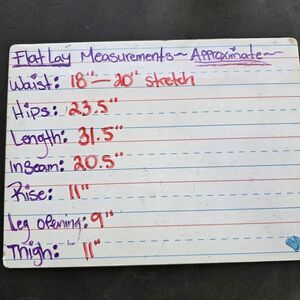 Flat Lay Measurements~ Approximate~
Waist: 18"-20" stretch
Hips: 23.5"
Length: 31.5"
Inseam: 20.5"
Rise: 11"
Leg opening: 9"
Thigh: 11"